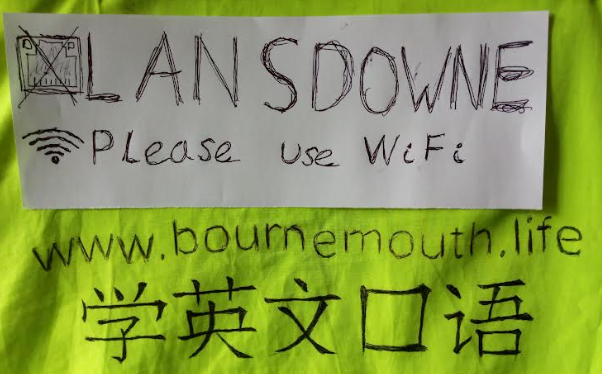 LANSDOWNE
Please use WiFi
www.bournemouth.life
学英文口语